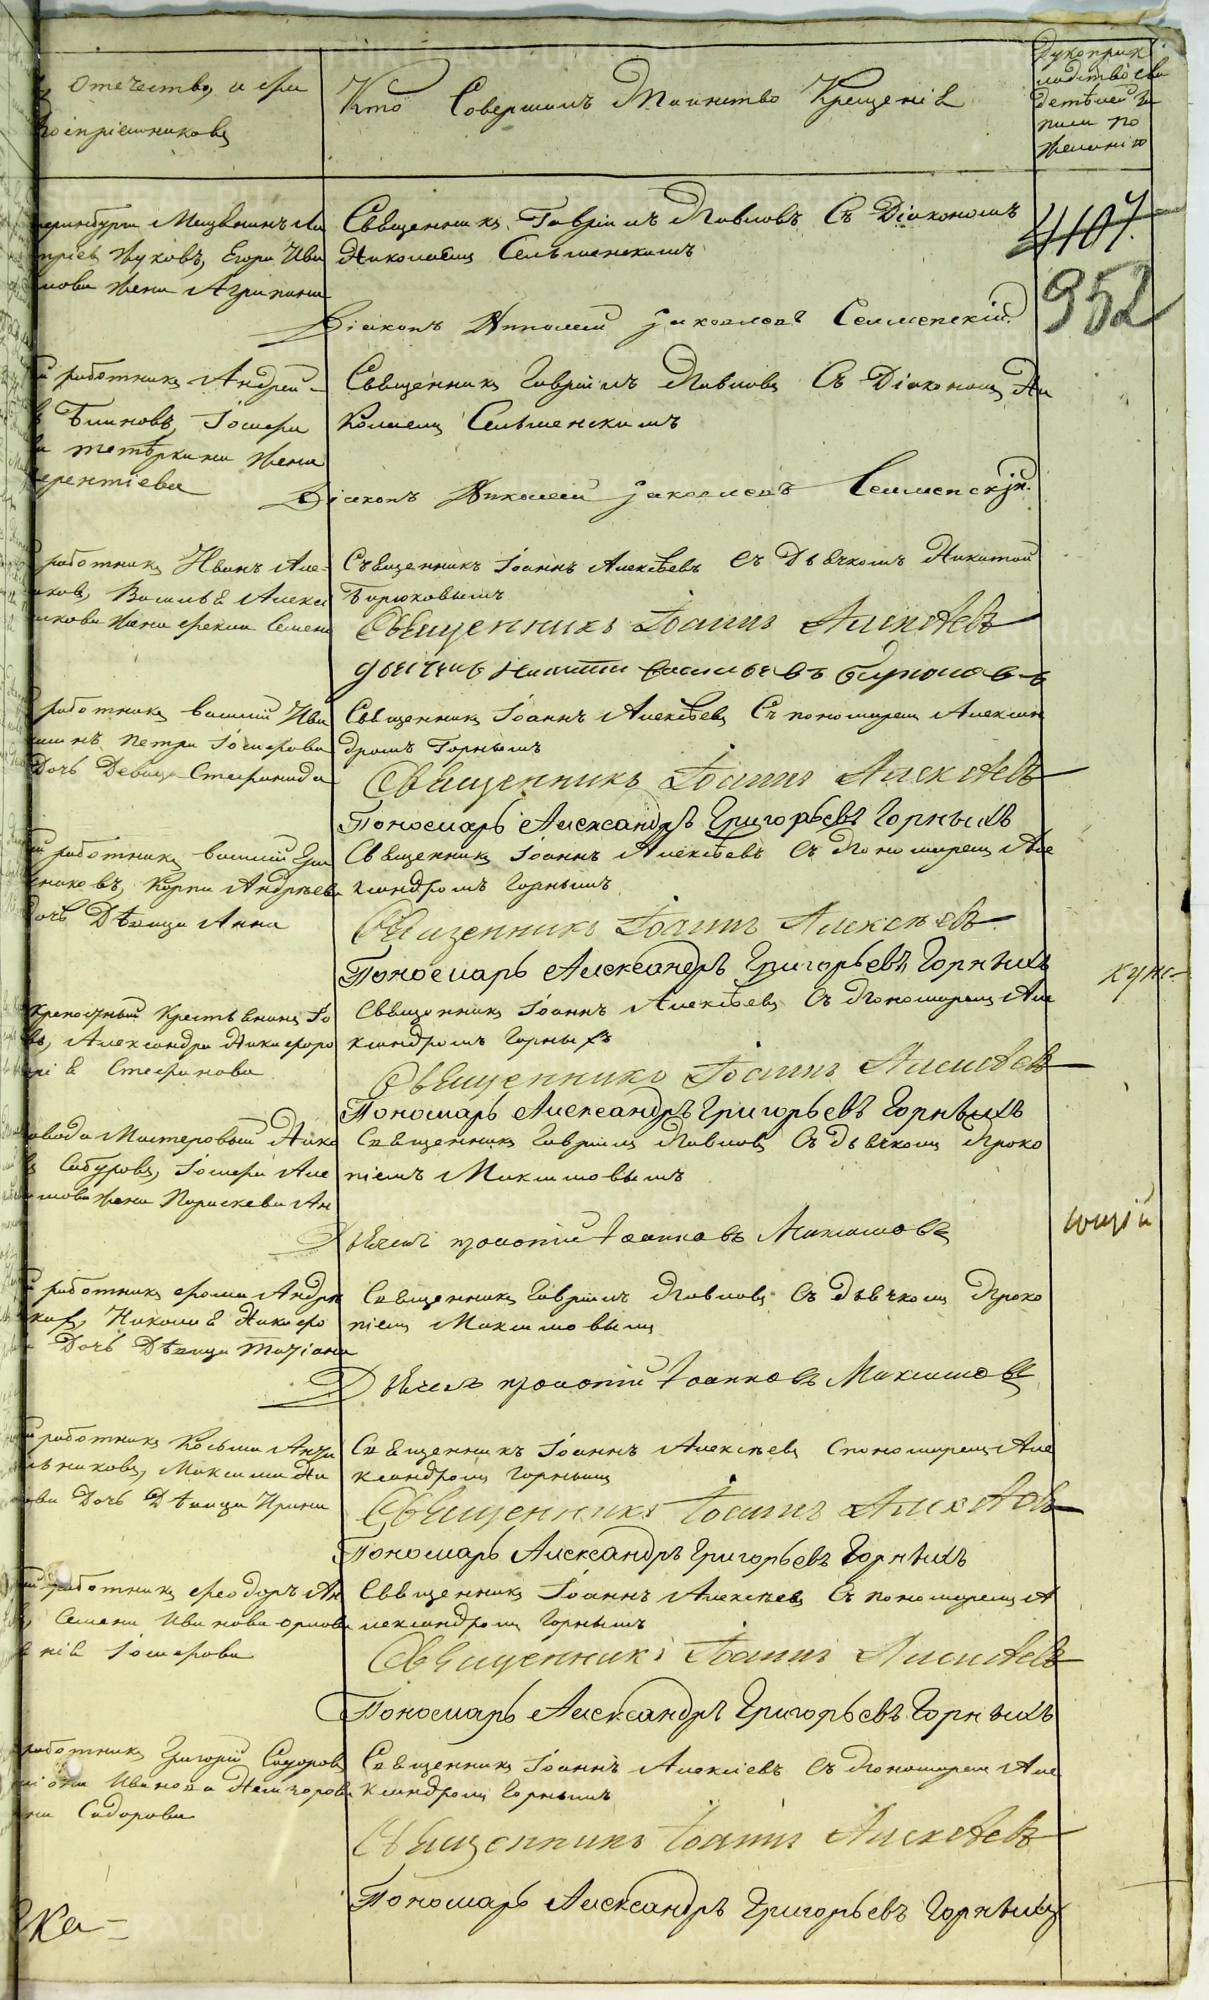 Отечество, и фа
воспріемниковъ
Кто Совершалъ Таинство Крещенія
Рукоприк
ладство сви
детѣлей за
писи по
желанію
4107.
952
теринбурга Мещанинъ
Жуковъ, Егора Ива
нова жена Агрипина
Священникъ Гавріилъ Павловъ Съ Діакономъ
Николаемъ Селменскимъ
Діаконъ Николай Іаковлевъ Селменскій.
работникъ Андрей
Блиновъ, Іосифа
Тетѣркина жена
Терентіева
Священникъ Гавріилъ Павловъ Съ Діакономъ Ни
колаемъ Селменскимъ
Діаконъ Николай Іаковлевъ Селменскій.
работникъ Иванъ Але
ковъ, Василья Алекс
никова жена Фекла Семен
Священникъ Іоаннъ Алексѣевъ съ Дьячкомъ Никитой
Бирюковымъ
Священникъ Іоаннъ Алексѣевъ
дьячекъ Никита Васильевъ Бирюковъ
работникъ Василій Ива
Петра Іосифова
Дочь Девица Стефанида
Священникъ Іоаннъ Алексѣевъ Съ пономаремъ Алексан
дромъ Горнымъ
Священникъ Іоаннъ Алексѣевъ
Пономарь Александръ Григорьевъ Горныхъ
работникъ Василій
никовъ, Карпа Андрѣева
дочь Дѣвица Анна
Священникъ Іоаннъ Алексѣевъ съ Пономаремъ Але
ксандромъ Горнымъ
Священникъ Іоаннъ Алексѣевъ
Пономарь Александръ Григорьевъ Горныхъ
крепостный Крестьянинъ
Александра Никифоро
Стефанова
Священникъ Іоаннъ Алексѣевъ Съ Пономаремъ Але
ксандромъ Горныхъ
Священникъ Іоаннъ Алексѣевъ
Пономарь Александръ Григорьевъ Горныхъ
завода Мастеровый Ники
Сабуровъ, Іосифа Але
жена Параскева Ан
Священникъ Гавріилъ Павловъ Съ дьячкомъ Проко
піемъ Максимовымъ
Дьячекъ Прокопій Іоанновъ Максимовъ
работникъ Фома Андре
Никола Никифо
Дочь Дѣвица Татіана
Священникъ Гавріилъ Павловъ Съ дьячкомъ Проко
піемъ Максимовымъ
Дьячекъ Прокопій Іоанновъ Максимовъ
работникъ Косьма
льниковъ, Максима Ни
Дочь Дѣвица Ирина
Священникъ Іоаннъ Алексѣевъ Спономаремъ Але
ксандромъ Горнымъ
Священникъ Іоаннъ Алексѣевъ
Пономарь Александръ Григорьевъ Горныхъ
работникъ Феодоръ Ан
Семена Иванова Орлова
Іосифова
Священникъ Іоаннъ Алексѣевъ Съ пономаремъ А
лександромъ Горнымъ
Священникъ Іоаннъ Алексѣевъ
Пономарь Александръ Григорьевъ Горныхъ
работникъ Григорій Сидоровъ
Иванова
Сидорова
Священникъ Іоаннъ Алексѣевъ съ Пономаремъ Але
ксандромъ Горнымъ
Священникъ Іоаннъ Алексѣевъ
Пономарь Александръ Григорьевъ Горныхъ